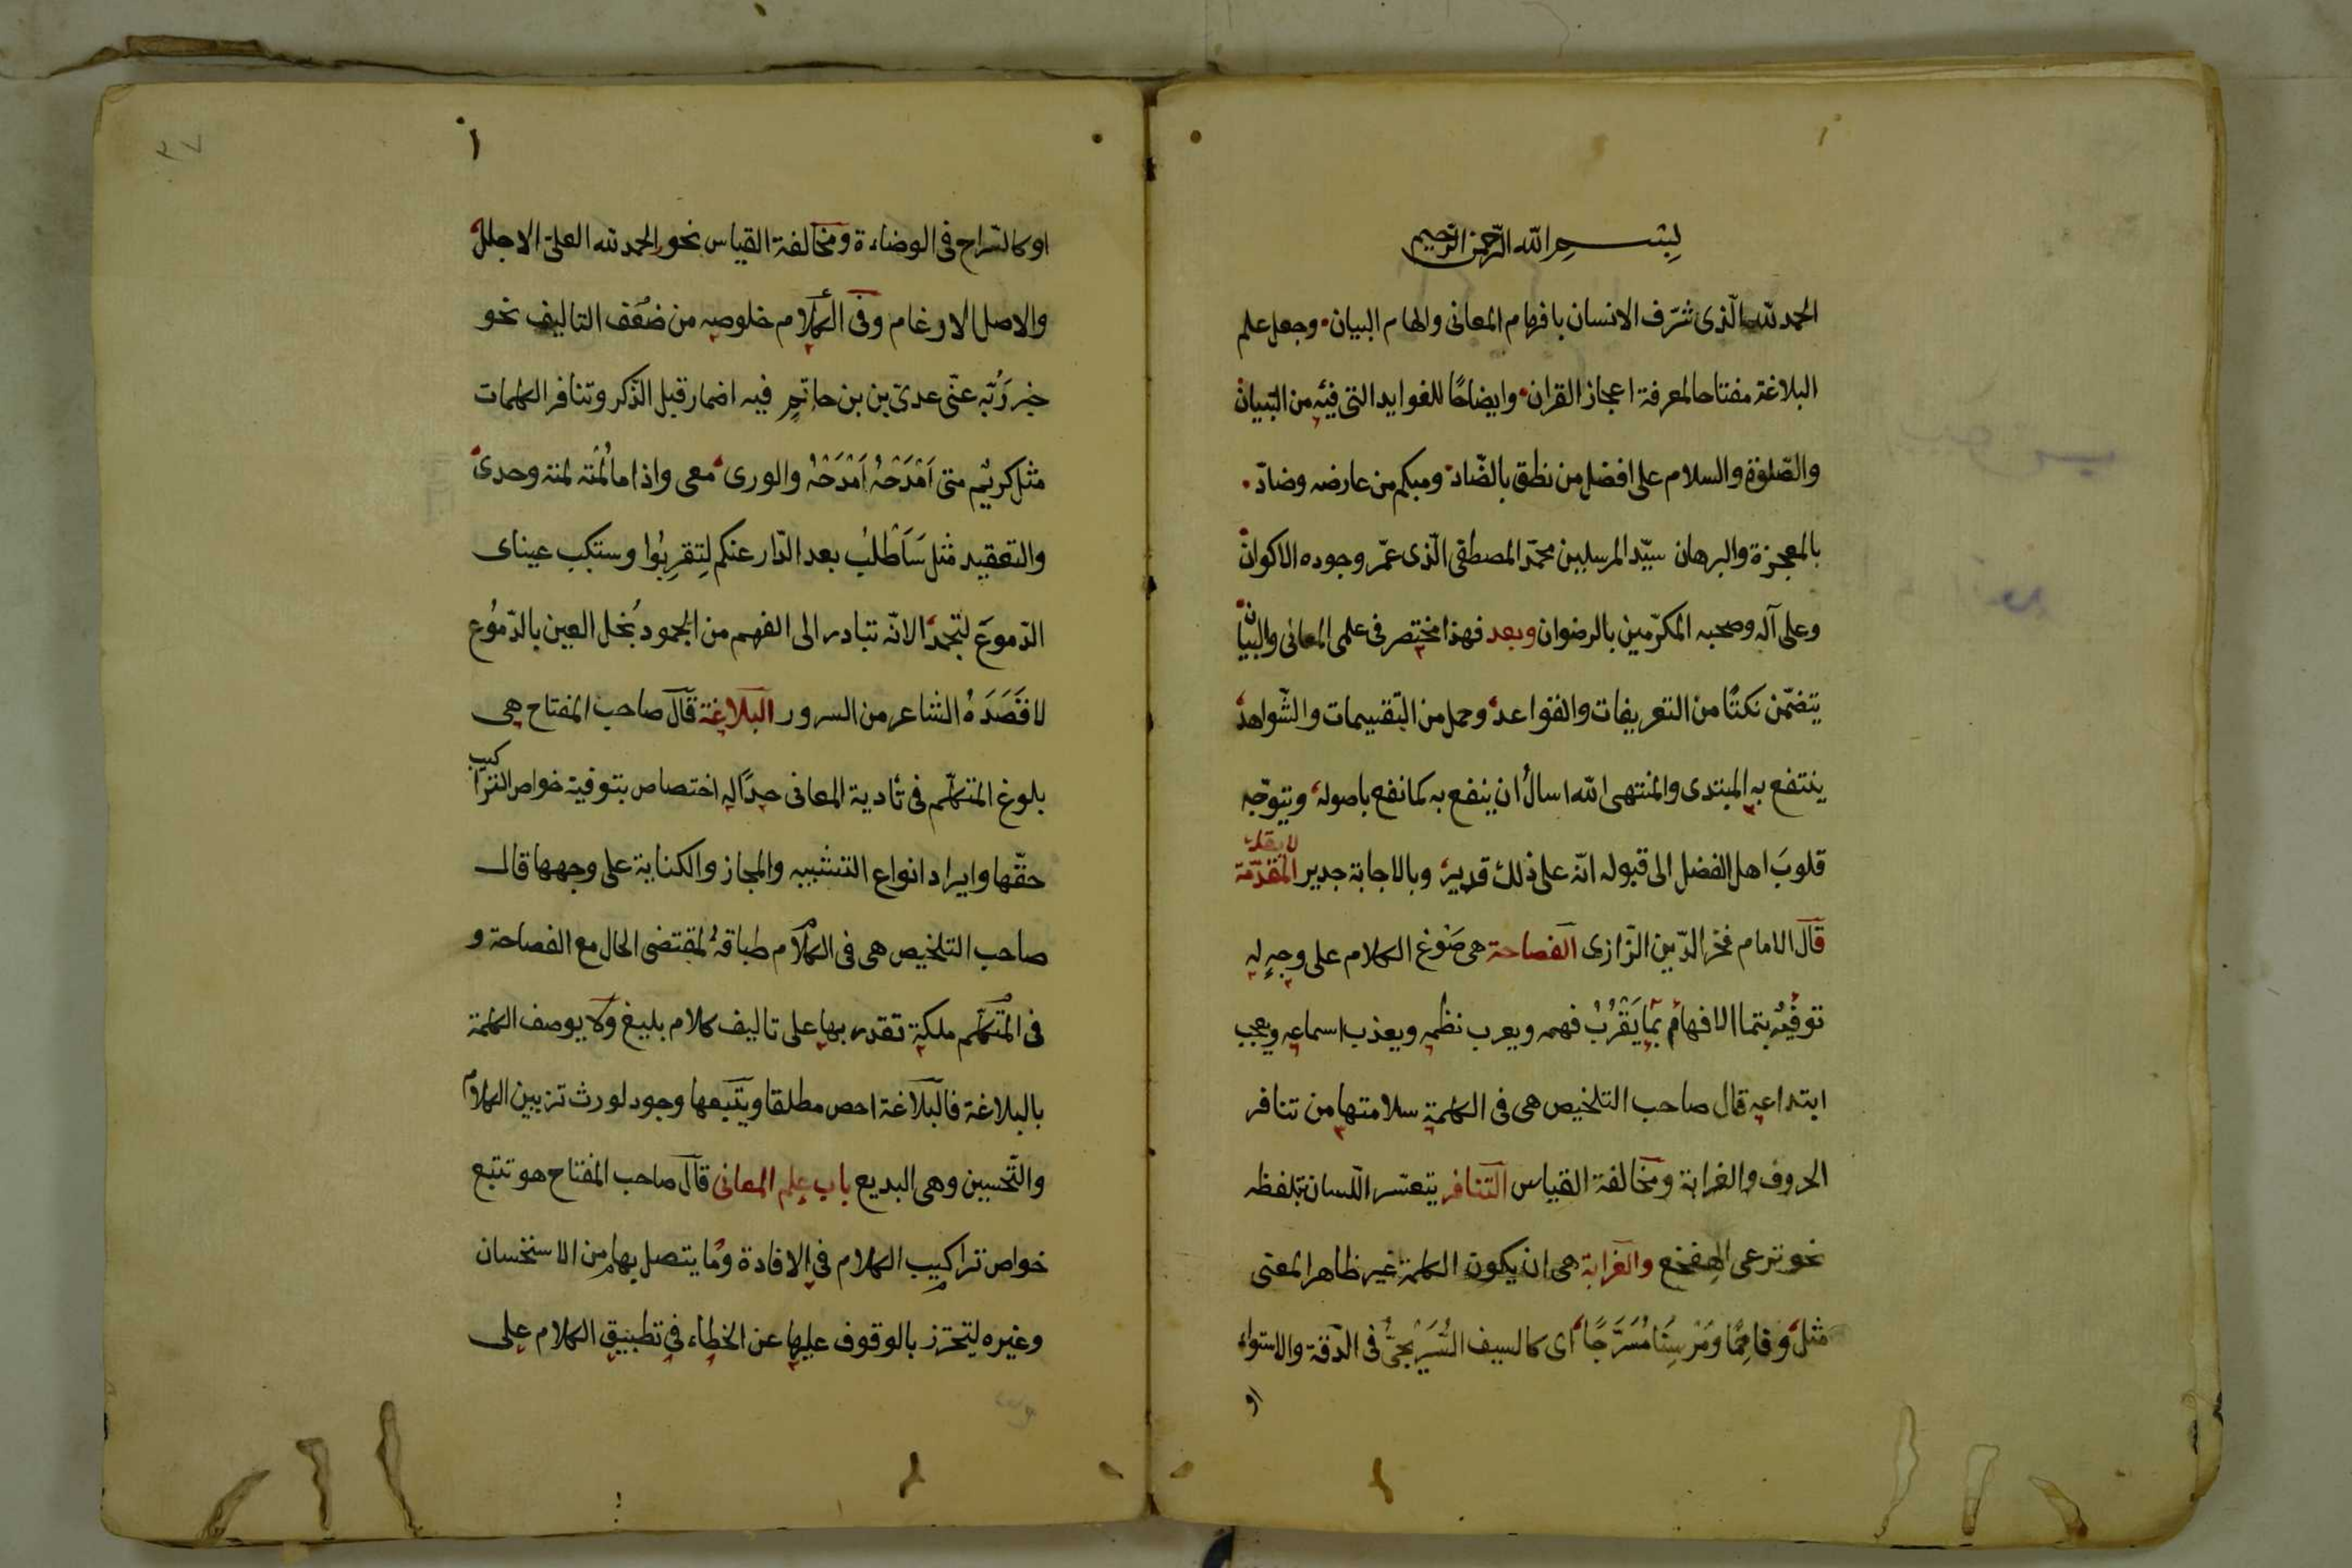 بسم الله الرحمن الرحيم
الحمد لله الّذى شرّف الانسان بافهام المعانى والهام البيان وجعل علم
البلاغة مفتاحا لمعرفة اعجاز القران وايضاحًا للفوايد التى فيه من التبيان
والصّلوة والسلام على افضل من نطق بالضّاد ومبكم من عارضه وضادّ
بالمعجزة والبرهان سيّد المرسلين محمّد المصطفى الّذى عمّر وجوده الاكوان
وعلى آله وصحبه المكرّمين بالرضوان وبعد فهذا مختصر فى علمى المعانى والبيان
يتضمّن نكتًا من التعريفات والقواعد وجمل من التّقسيمات والشّواهد
ينتفع به المبتدى والمنتهى الله اسال أن ينفع به كما نفع باصوله ويتوّجه
قلوبَ اهل الفضل الى قبوله انّه على ذلك قدير وبالاجابة جدير المقدّمة
قال الامام فخر الدّين الرّازى الفصاحة هى صَوْغ الكلام على وجهٍ له
توفيه بتما الافهام بما يَقْرُبُ فهمه ويعرب نظمه ويعذب اسماعه ويعجب
ابتداعه قال صاحب التلخيص هى فى الكلمة سلامتها من تنافر
الحروف والغرابة ومخالفة القياس التنافر يتعسّر اللّسان بتلفظه
نحو ترعى الهخع والغرابة هى ان يكون الكلمة غير ظاهر المعنى
مثل وفاحِمًا ومَرْسِنًا مُسَرَّجًا اى كالسيف السُّرَيْجىّ فى الدّقة والاستواء
او
١
او كالسّراج فى الوضاءة ومخالفة القياس نحو الحمد لله العلىّ الاجلل
والاصل الادغام وفى الكلام خلوصه من ضُعف التاليف نحو
خبر رَبّه عنّى عدىّ بن بن حاتمٍ فيه اضمار قبل الذّكر وتنافر الكلمات
مثل كريْم متى اَمْدَحْهُ اَمْدَحْهُ والورى معى واذا ما لُمْتُه لمته وحدى
والتعقيد مثل سَاَطْلبُ بعد الدّار عنكم لِتقربُوا وستكب عيناى
الدّموعَ لتجمدا لانّه تبادر الى الفهم من الجمود بُخل العين بالدّموُع
لا قَصَدَهُ الشاعر من السرور البلاغة قال صاحب المفتاح هى
بلوغ المتكلّم فى تأدية المعانى حدّا له اختصاص بتوفية خواص التراكيب
حقّها وايراد انواع التشبيه والمجاز والكناية على وجهها قال
صاحب التلخيص هى فى الكلام طباقه لمقتضى الحال مع الفصاحة و
فى المتكلم ملكة تقدر بها على تاليف كلام بليغ ولا يوصف الكلمة
بالبلاغة فالبلاغة احص مطلقا ويتبعها وجود لورث تزيين الكلام
والتّحسين وهى البديع باب علم المعانى قال صاحب المفتاح هو تتبع
خواص تراكيب الكلام فى الافادة وما يتصل بها من الاستحسان
وغيره ليتحترز بالوقوف عليها عن الخطاء فى تطبيق الكلام على